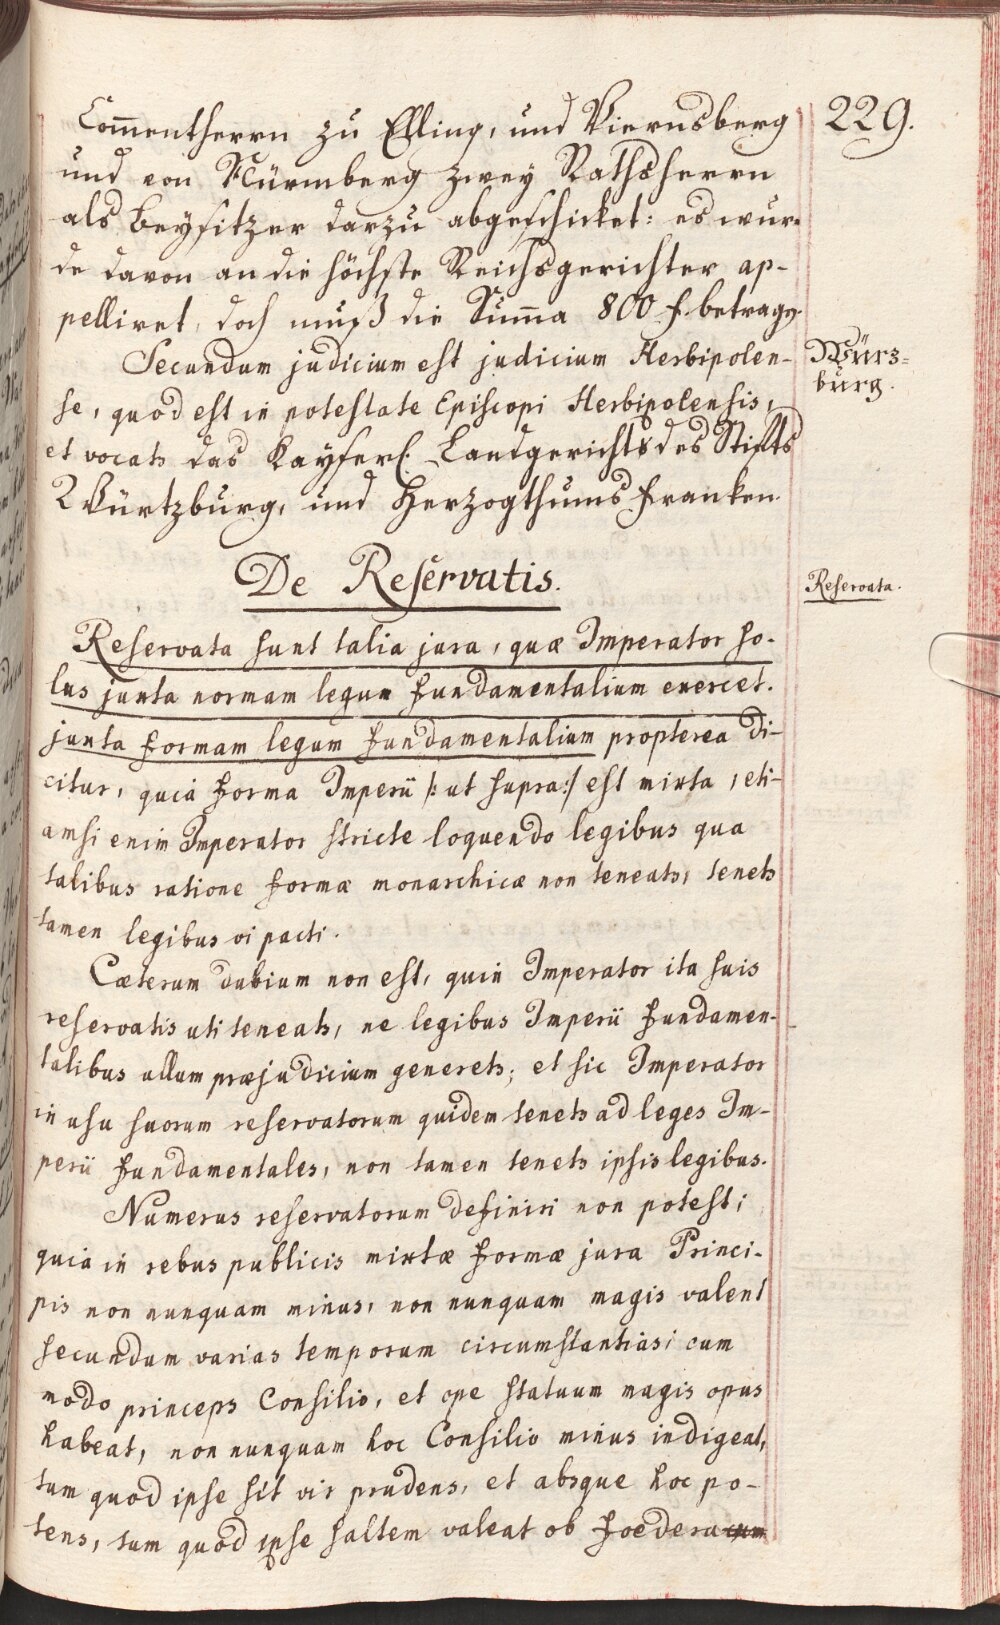 229.
Com̄entherrn zu Elling, und Viernsberg
und von Nürmberg zwey Rathsherrn
als Beysitzer darzu abgeschicket: es wur-
de davon an die höchste Reichsgerichter ap-
pelliret, doch muß die Sum̄a 800 f. betragen.
Secundum judicium est judicium Herbipolen-
se, quod est in potestate Episcopi Herbipolensis,
et vocatr das Kayserl. Landgerichts des Stifts
Würtzburg, und Herzogthums Franken.
Würz=
burg.
De Reservatis.
Reservata.
Reservata sunt talia jura, quæ Imperator so-
lus juxta normam legum fundamentalium exercet.
juxta formam legum fundamentalium propterea di-
citur, quia forma Imperii /: ut supra:/ est mixta, eti-
amsi enim Imperator stricte loquendo legibus qua
talibus ratione formæ monarchicæ non teneatr, tenetr
tamen legibus vi pacti.
Cæterum dubium non est, quin Imperator ita suis
reservatis uti teneatr, ne legibus Imperii fundamen-
talibus ullum præjudicium generetr; et sic Imperator
in usu suorum reservatorum quidem tenetr ad leges Im-
perii fundamentales, non tamen tenetr ipsis legibus.
Numerus reservatorum definiri non potest;
quia in rebus publicis mixtæ formæ jura Princi-
pis non nunquam minus, non nunquam magis valent
secundum varias temporum circumstantias; cum
modo princeps Consilio, et ope statuum magis opus
habeat, non nunquam hoc Consilio minus indigeat,
tum quod ipse sit vir prudens, et absque hoc po-
tens, tum quod ipse saltem valeat ob foedera